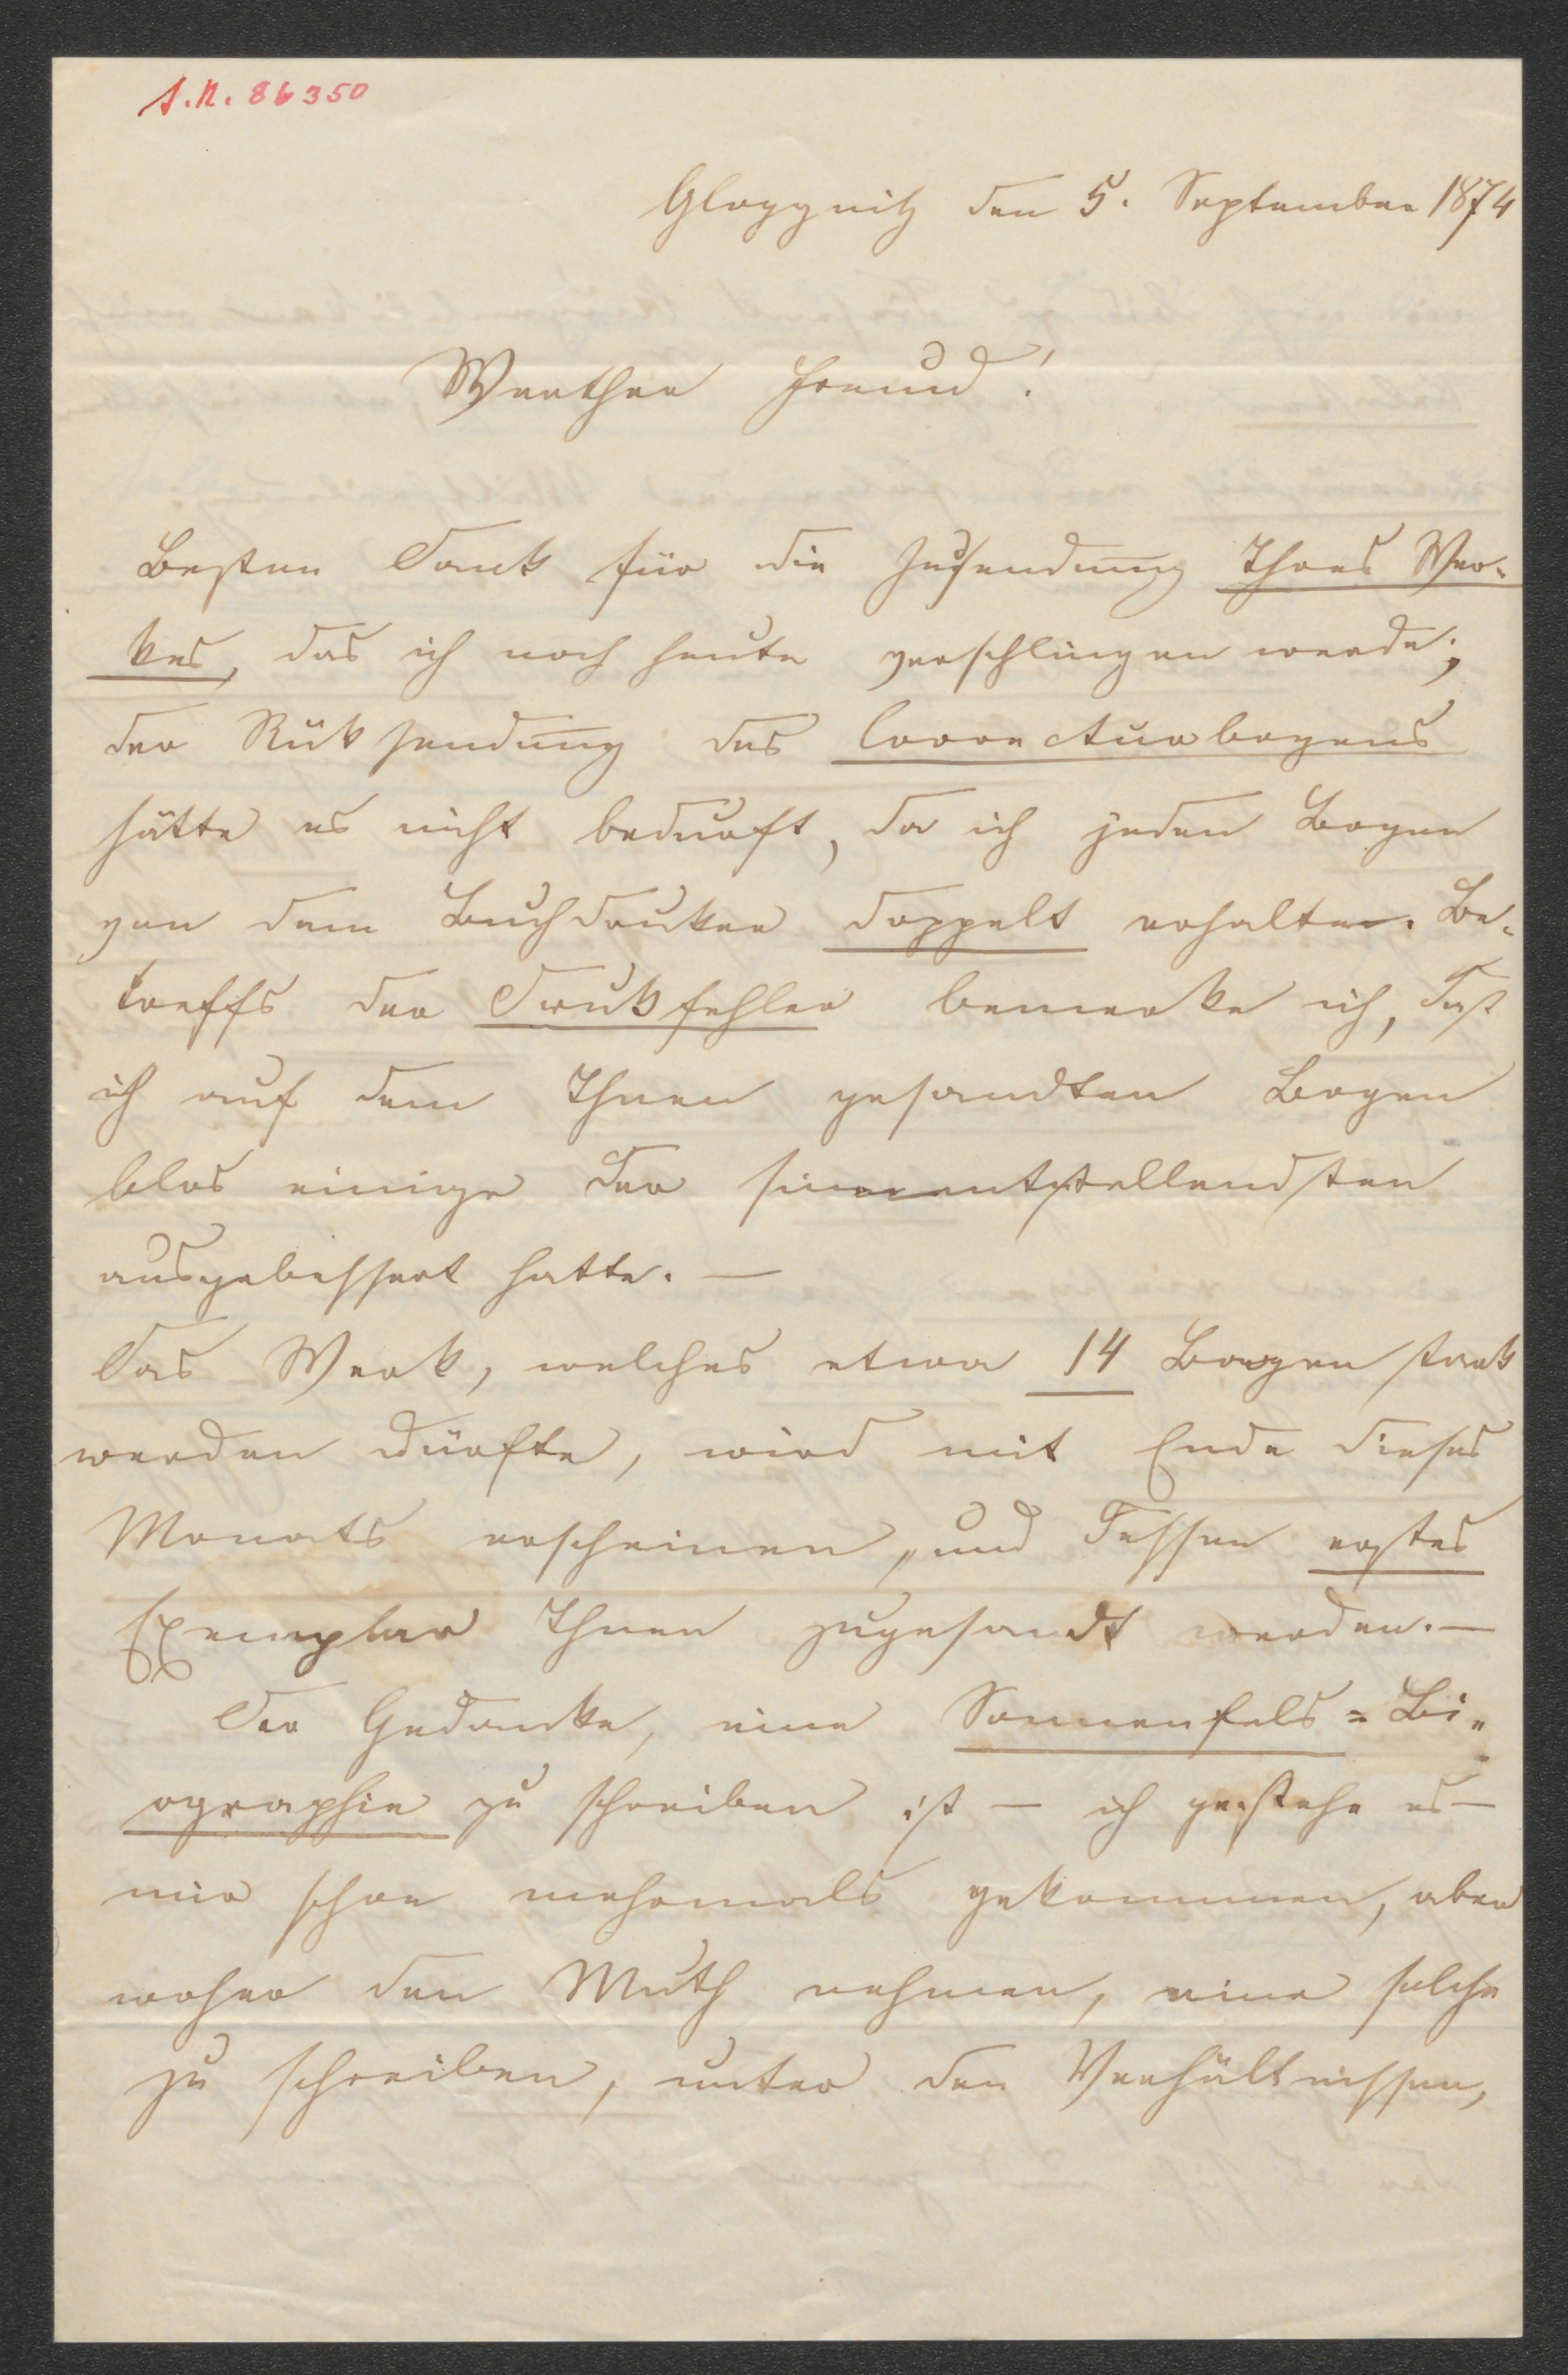 I.N. 86350
Gloggnitz den 5. September 1874
Werther Freund!
Besten Dank für die Zusendung Ihres Wer-
kes, das ich noch heute verschlingen werde;
der Rüksendung des Correcturbogens
hätte es nicht bedurft, da ich jeden Bogen
von dem Buchdruker doppelt erhalten. Be-
treffs der Drukfehler bemerke ich, daß
ich auf dem Ihnen gesandten Bogen
blos einige der sinnentstellendsten
ausgebessert hatte. —
Das Werk, welches etwa 14 Bogen stark
werden dürfte, wird mit Ende dieses
Monats erscheinen, und dessen erstes
Exemplar Ihnen zugesandt werden. —
Der Gedanke, eine Sonnenfels=Bi-
ographie zu schreiben ist — ich gestehe es —
mir schon mehrmals gekommen, aber
woher den Muth nehmen, eine solche
zu schreiben, unter den Verhältnissen,